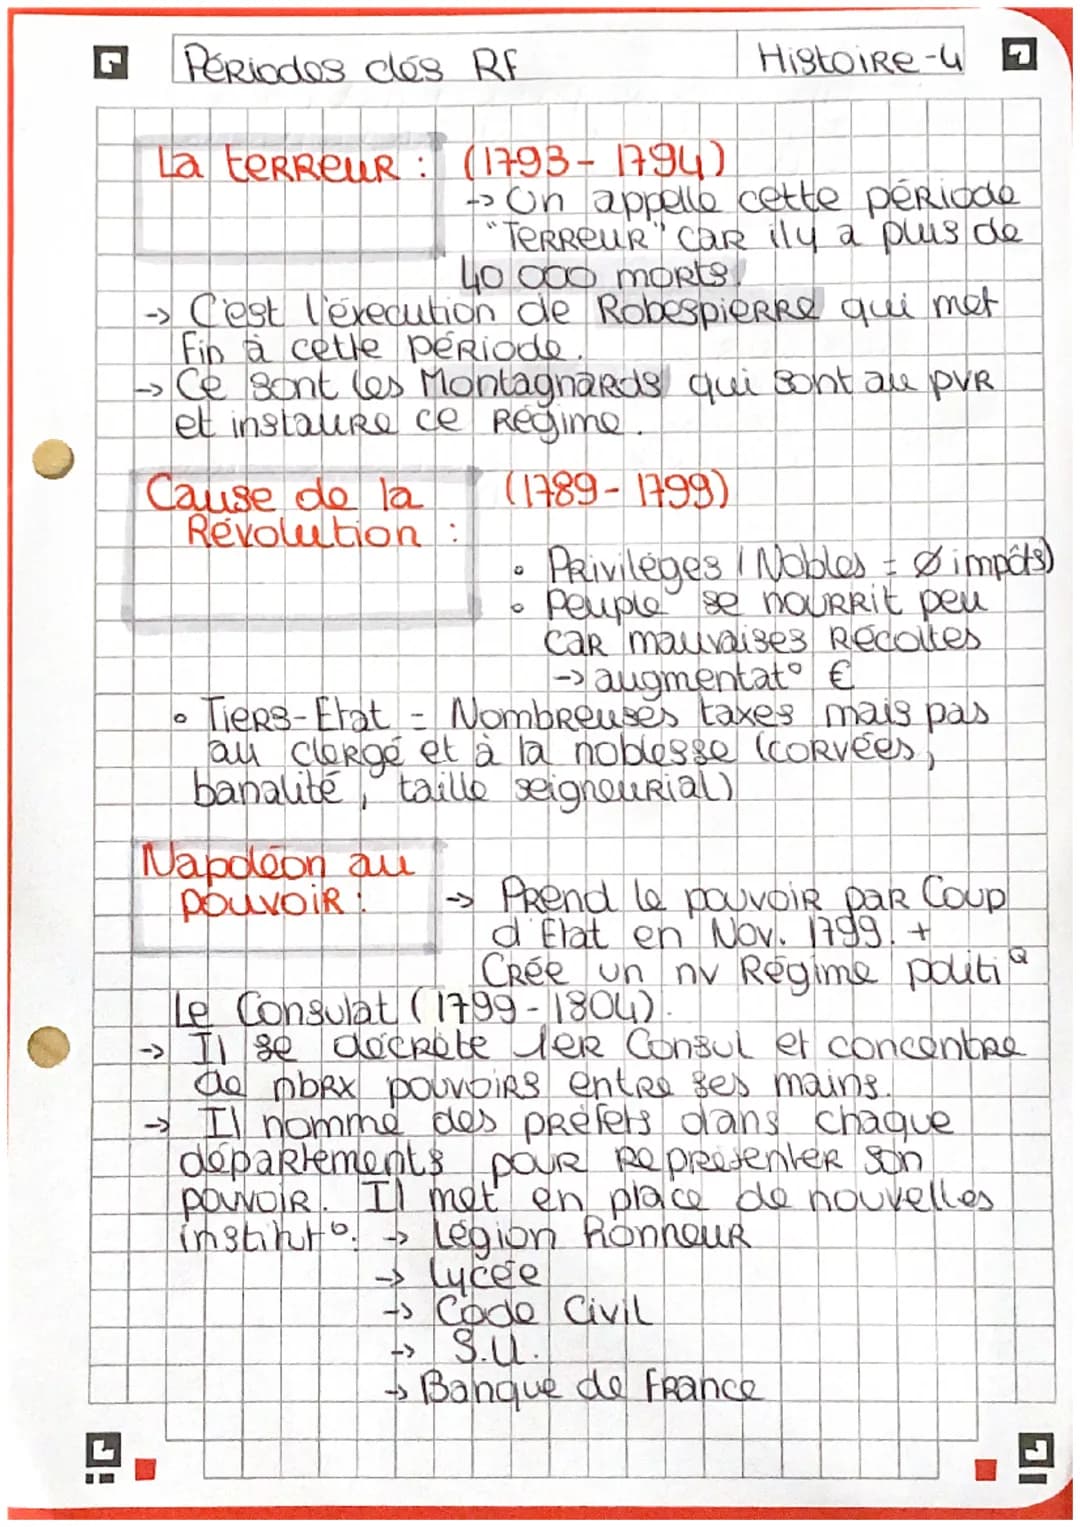 Périodes clés Rf
Histoire-4
La terreur : (1793-1794)
-> On appelle cette période
"Terreur" car il y a plus de
40 000 morts.
-> C'est l'éxecution de Robespierre qui met
fin à cette période.
-> Ce sont les Montagnards qui sont au pvr
et instaure ce Régime.
Cause de la (1789-1799)
Révolution :
• Privilèges (Nobles = Ø impôts)
• Peuple se nourrit peu
car mauvaises Récoltes
-> augmentat° €
• Tiers-Etat = Nombreuses taxes mais pas
au clergé et à la noblesse (corvées,
banalité, taille seigneurial)
Napoléon au
pouvoir :
-> Prend le pouvoir par Coup
d'Etat en Nov. 1799. +
Crée un nv Régime politiQ
Le Consulat (1799-1804).
-> Il se décrète 1er Consul et concentre
de nbrx pouvoirs entre ses mains.
-> Il nomme des préfets dans chaque
départements pour représenter son
pouvoir. Il met en place de nouvelles
institut°. -> Légion honneur
-> Lycée
-> Code Civil
-> S.U.
-> Banque de France